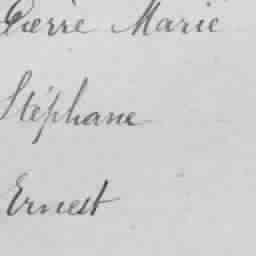 Pierre Marie
Stéphane
Ernest